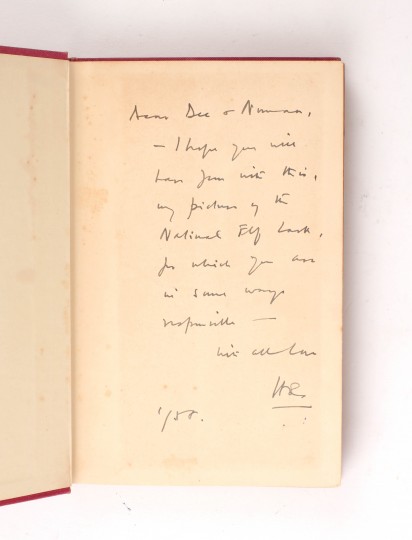 Dear Dee & Norman,
— I hope you will
have fun with this,
my picture of the
National Elf
for which you are
in some ways
responsible —
with all love
1/58.